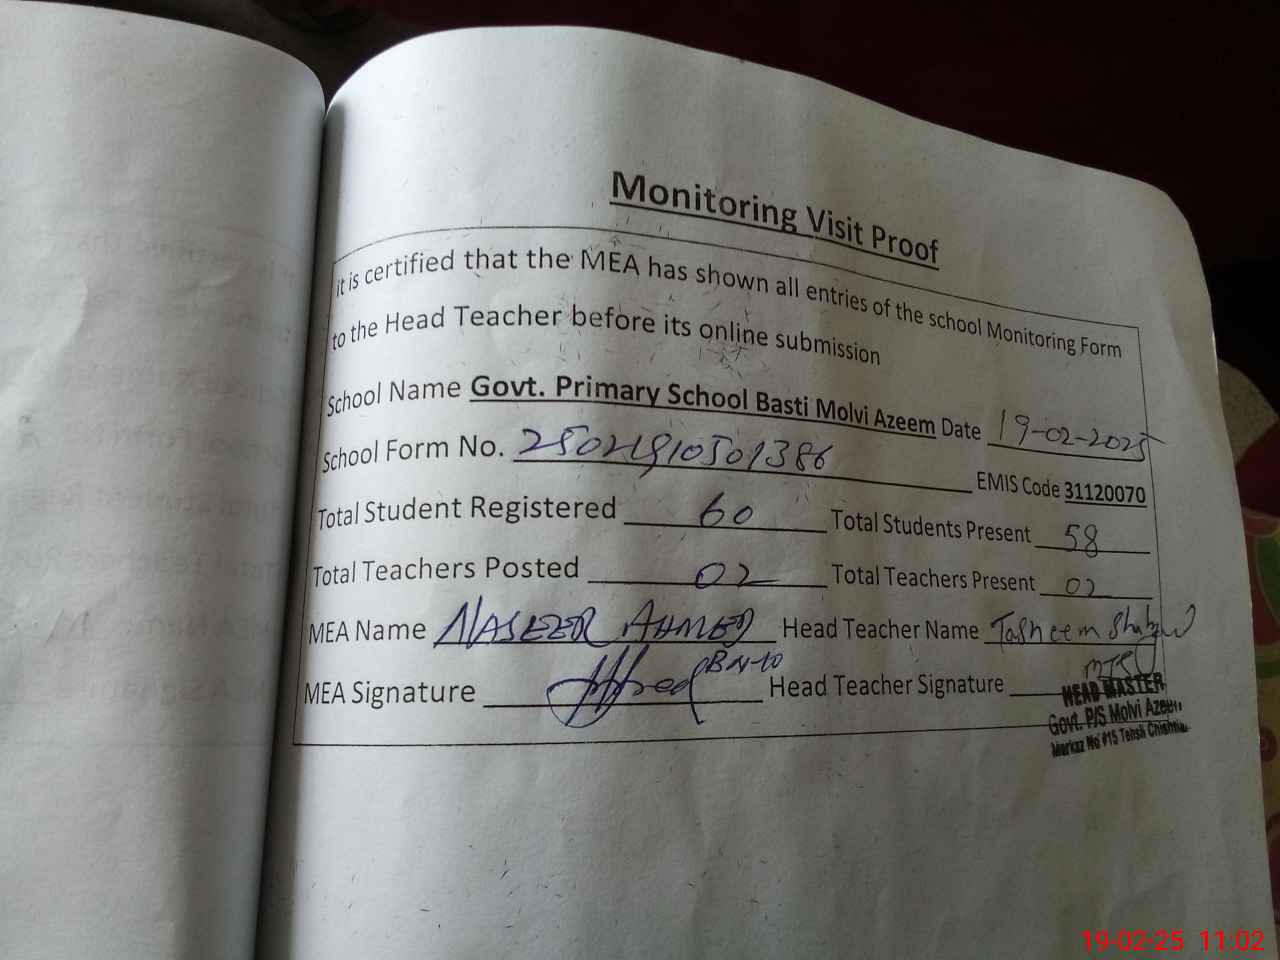 Monitoring Visit Proof
it is certified that the MEA has shown all entries of the school Monitoring Form
to the Head Teacher before its online submission
School Name Govt. Primary School Basti Molvi Azeem Date 19-02-2025
School Form No. 25021910501386 EMIS Code 31120070
Total Student Registered 60 Total Students Present 58
Total Teachers Posted 02 Total Teachers Present 02
MEA Name NASEER AHMED Head Teacher Name Tasneem
MEA Signature Head Teacher Signature
HEAD MASTER
Govt. P/S Molvi Azeem
Markaz No #15 Tehsil Chishtian
19-02-25 11:02